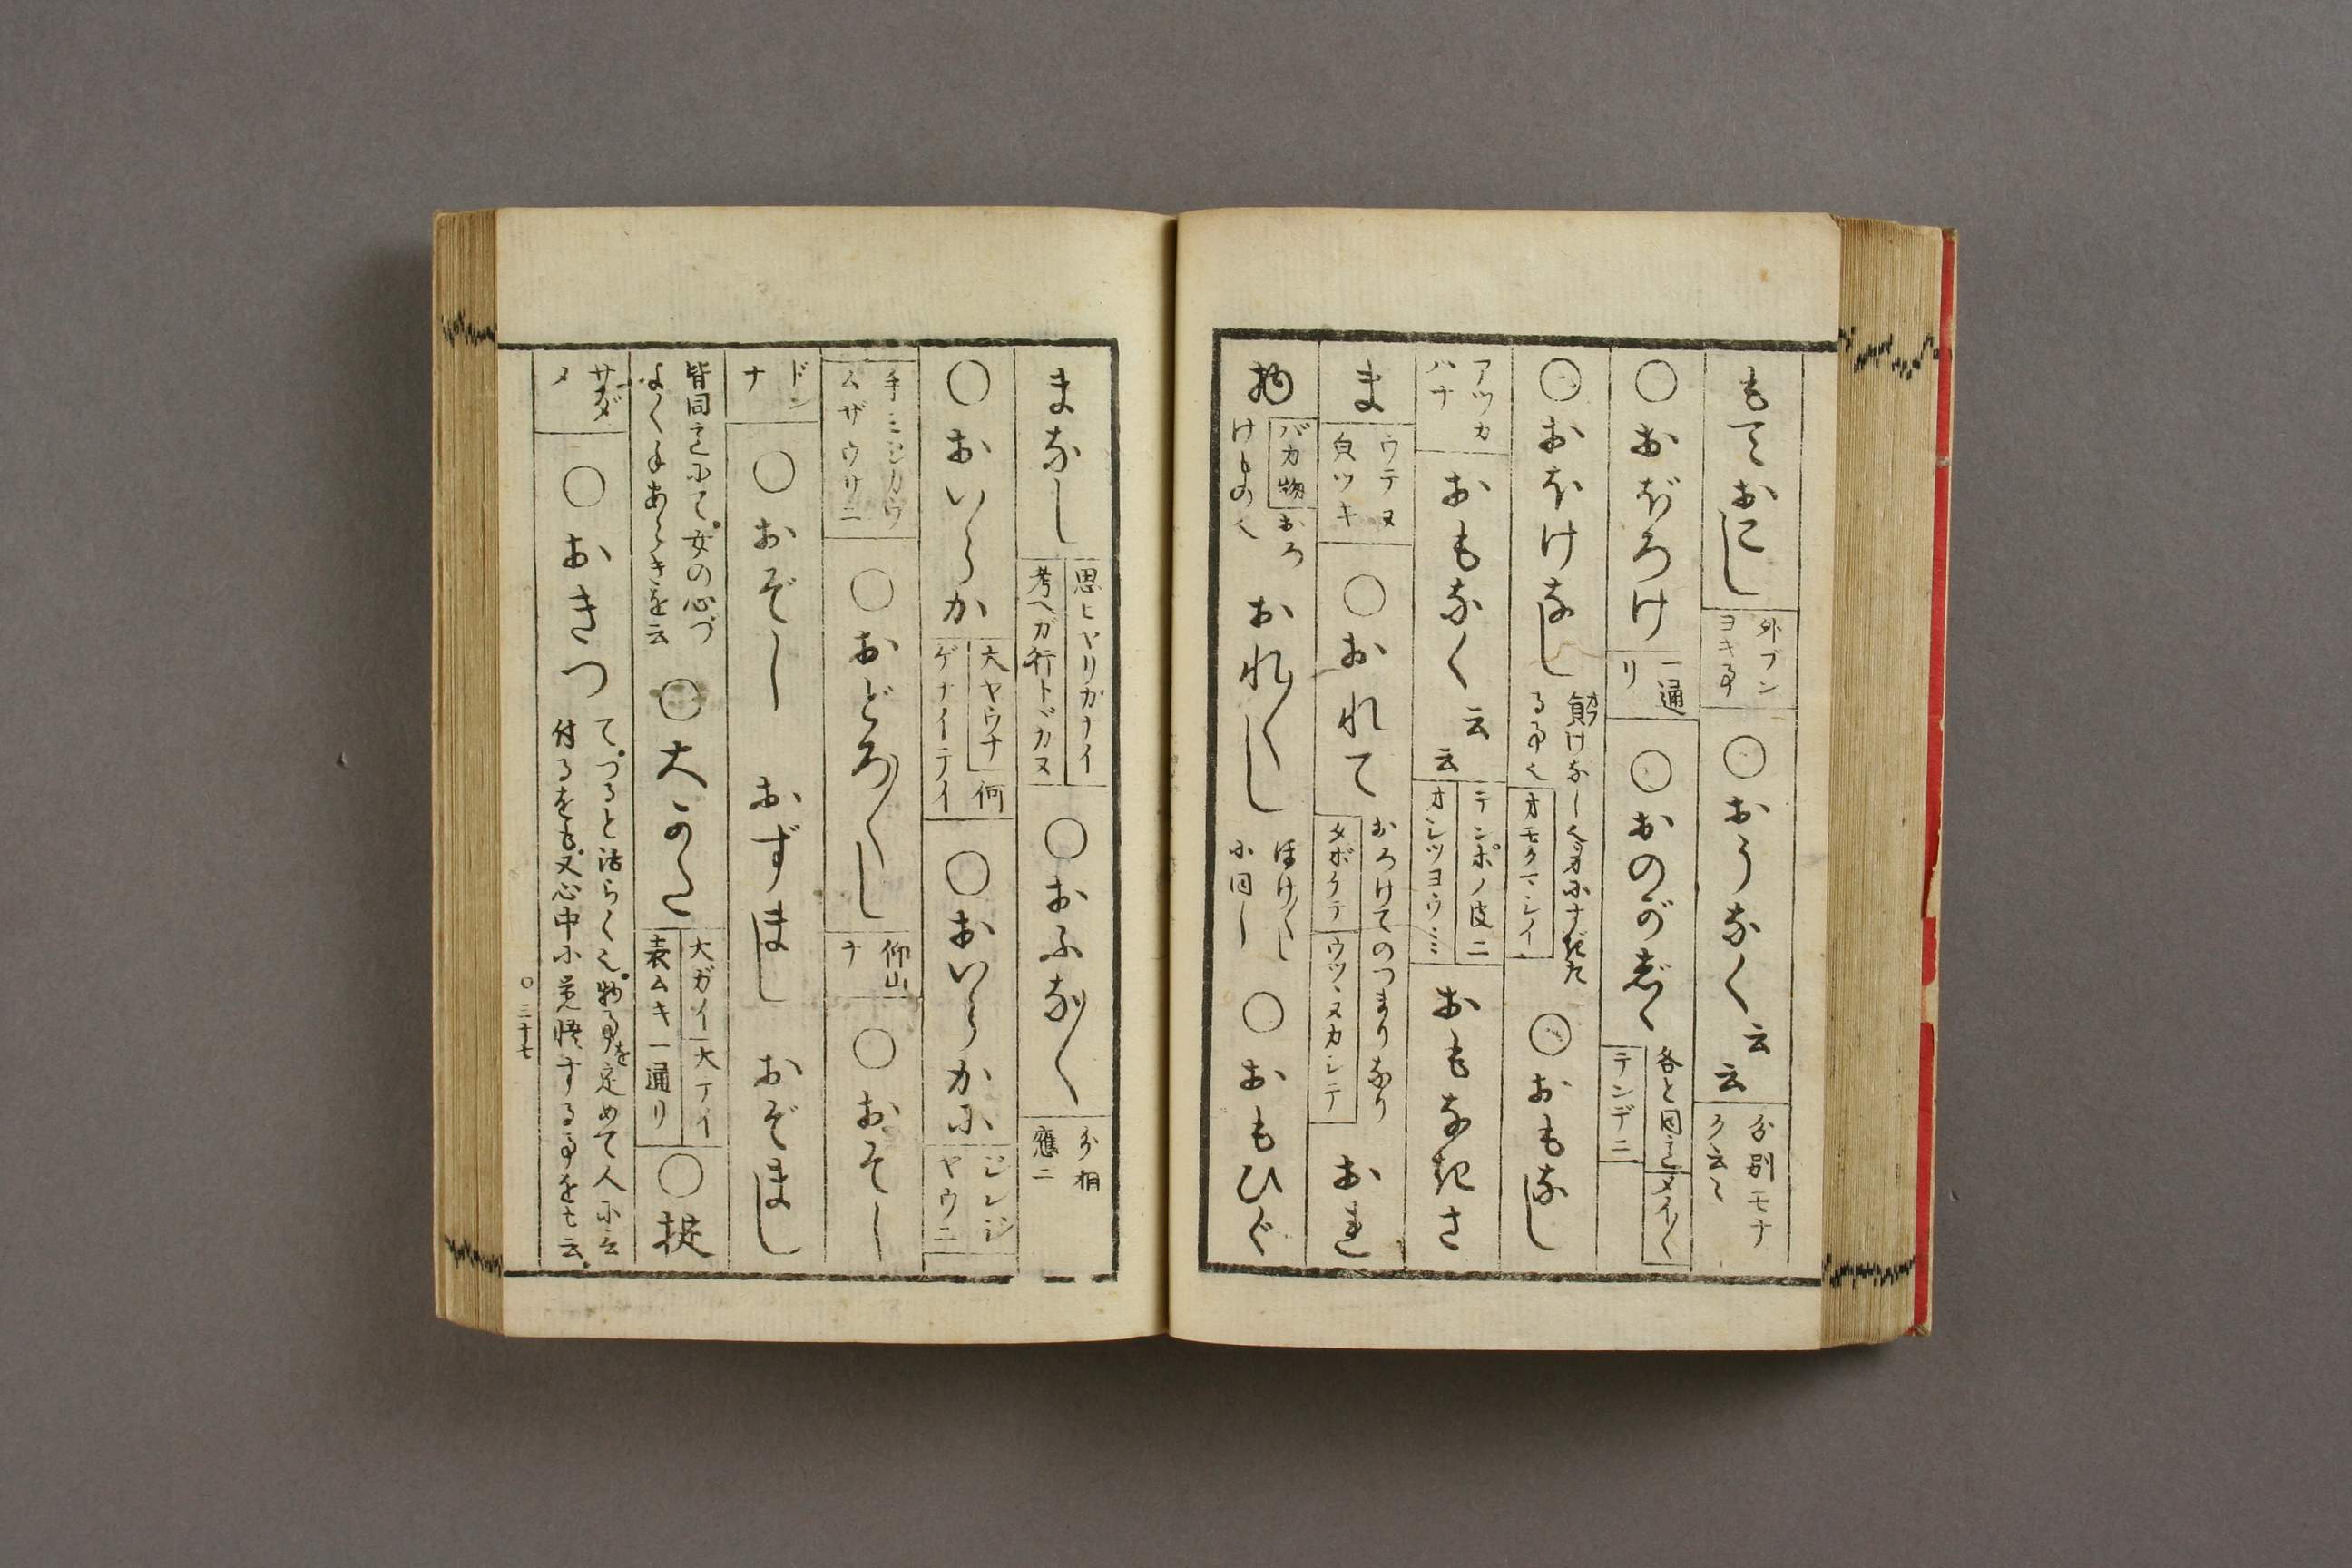 もておこし 外ブンヨキ事 ○おうなく云云 分別モナク云々
○おぼろけ 一通リ ○おのがじゝ 各と同じ メイ〳〵 テンデニ
○おほけなし 負けなしく オモクマシイ ○おもなし
アツカハナ おもなく云云 テンポノ皮ニ オシツヨウ おもなさ
ま ウテヌ 負ツキ ○おれて おろけてのつまりなり タボケテ ウツヽヌカシテ おれ
物 バカ物 おろけもの也 おれ〳〵し ほけ〳〵しに同し ○おもひぐ
まなし 思ヒヤリガナイ 考ヘガ行トヾカヌ ○おふな〳〵 分相應ニ
○おいらか 大ヤウナ 何ゲナイテイ ○おいらかに ジレジヤウニ
手ミジカウ ムザウサニ ○おどろ〳〵し 仰山ナ ○おそし
ドンナ ○おぞし おずまし おぞまし
皆同言にて。女の心づよくてあらきを云 ○大かた 大ガイ 大テイ 表ムキ一通リ ○掟
サダメ ○おきつ て。つると活らく也。物事を定めて人に云付るをも。又心中に覚悟する事をも云。
○三十七